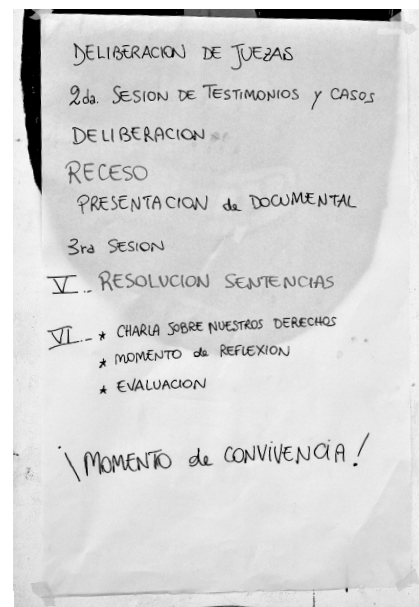 DELIBERACION DE JUEZAS
2da. SESION DE TESTIMONIOS y CASOS
DELIBERACION
RECESO
PRESENTACION de DOCUMENTAL
3ra SESION
V.. RESOLUCION SENTENCIAS
VI.. * CHARLA SOBRE NUESTROS DERECHOS
* MOMENTO de REFLEXION
* EVALUACION
¡MOMENTO de CONVIVENCIA!